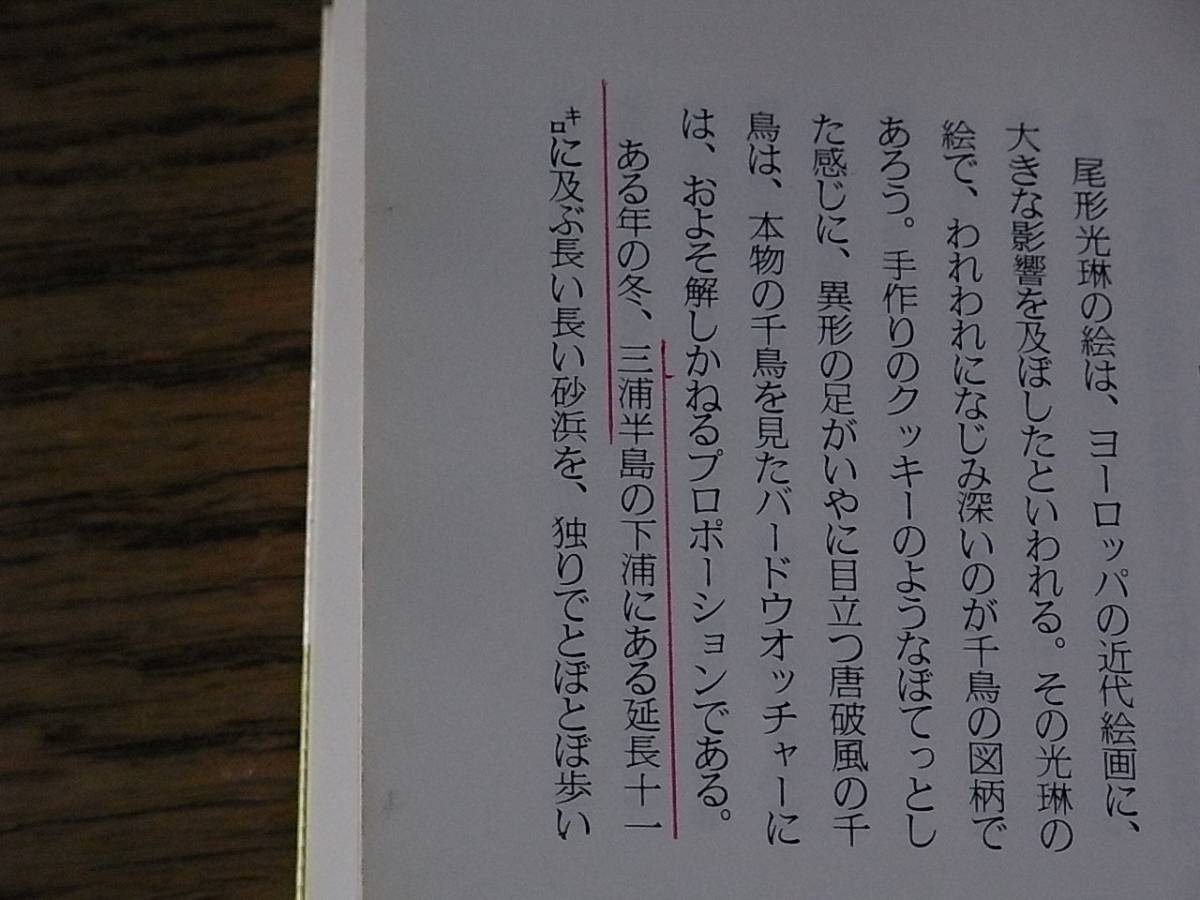 尾形光琳の絵は、ヨーロッパの近代絵画に、
大きな影響を及ぼしたといわれる。その光琳の
絵で、われわれになじみ深いのが千鳥の図柄で
あろう。手作りのクッキーのようなぽてっとし
た感じに、異形の足がいやに目立つ唐破風の千
鳥は、本物の千鳥を見たバードウオッチャーに
は、およそ解しかねるプロポーションである。
ある年の冬、三浦半島の下浦にある延長十一
㌔に及ぶ長い長い砂浜を、独りでとぼとぼ歩い